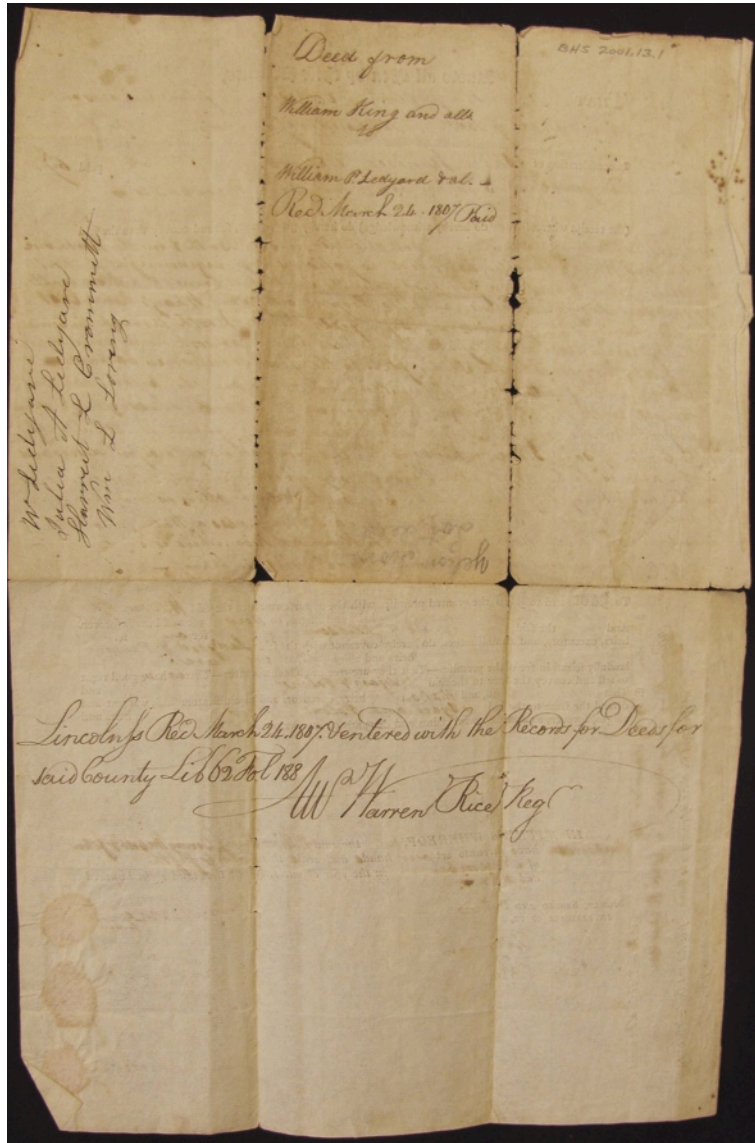 BHS 2001.13.1
Deed from
William King and alls
to
William P. Ledyard & al.
Recd. March 24. 1807 Paid
W Ledyard
Julia A Ledyard
Harriet L Crommett
Wm L Loring
Lincoln ss Recd. March 24. 1807. & entered with the Records for Deeds for
said County Lib 62 Fol 188
Warren Rice Regr